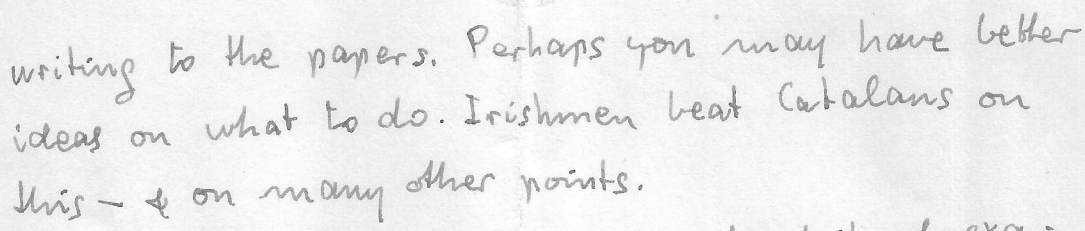 writing to the papers. Perhaps you may have better
ideas on what to do. Irishmen beat Catalans on
this – & on many other points.